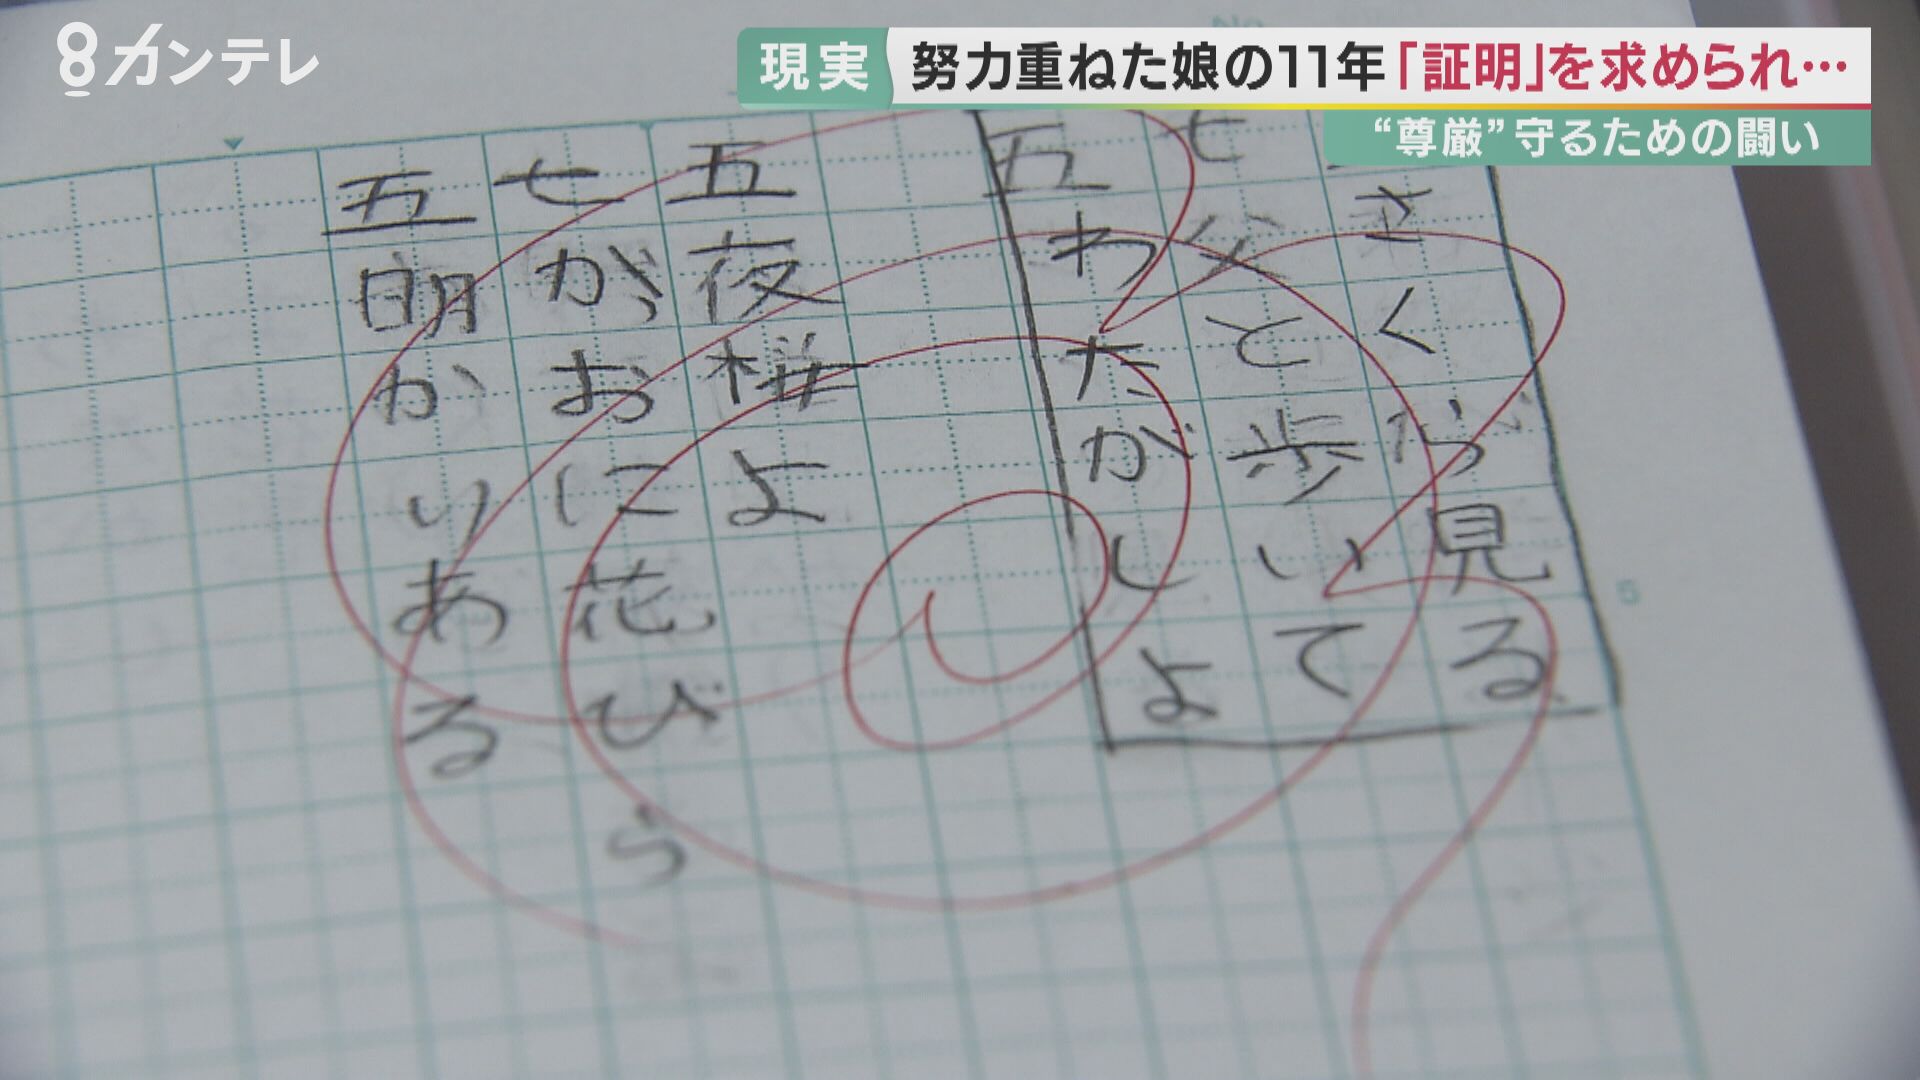 8カンテレ
現実
努力重ねた娘の11年「証明」を求められ…
“尊厳”守るための闘い
No.
さくが見る
七父と歩いて
五わたがしよ
五夜桜よ
七がおに花びら
五明かりある
5